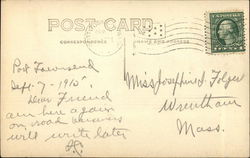 POST CARD
CORRESPONDENCE
Port Townsend
Sept. 7 - 1915
Dear Friend
am here again
on road
will write later
Miss Josephine L. Folger
Wrentham
Mass.